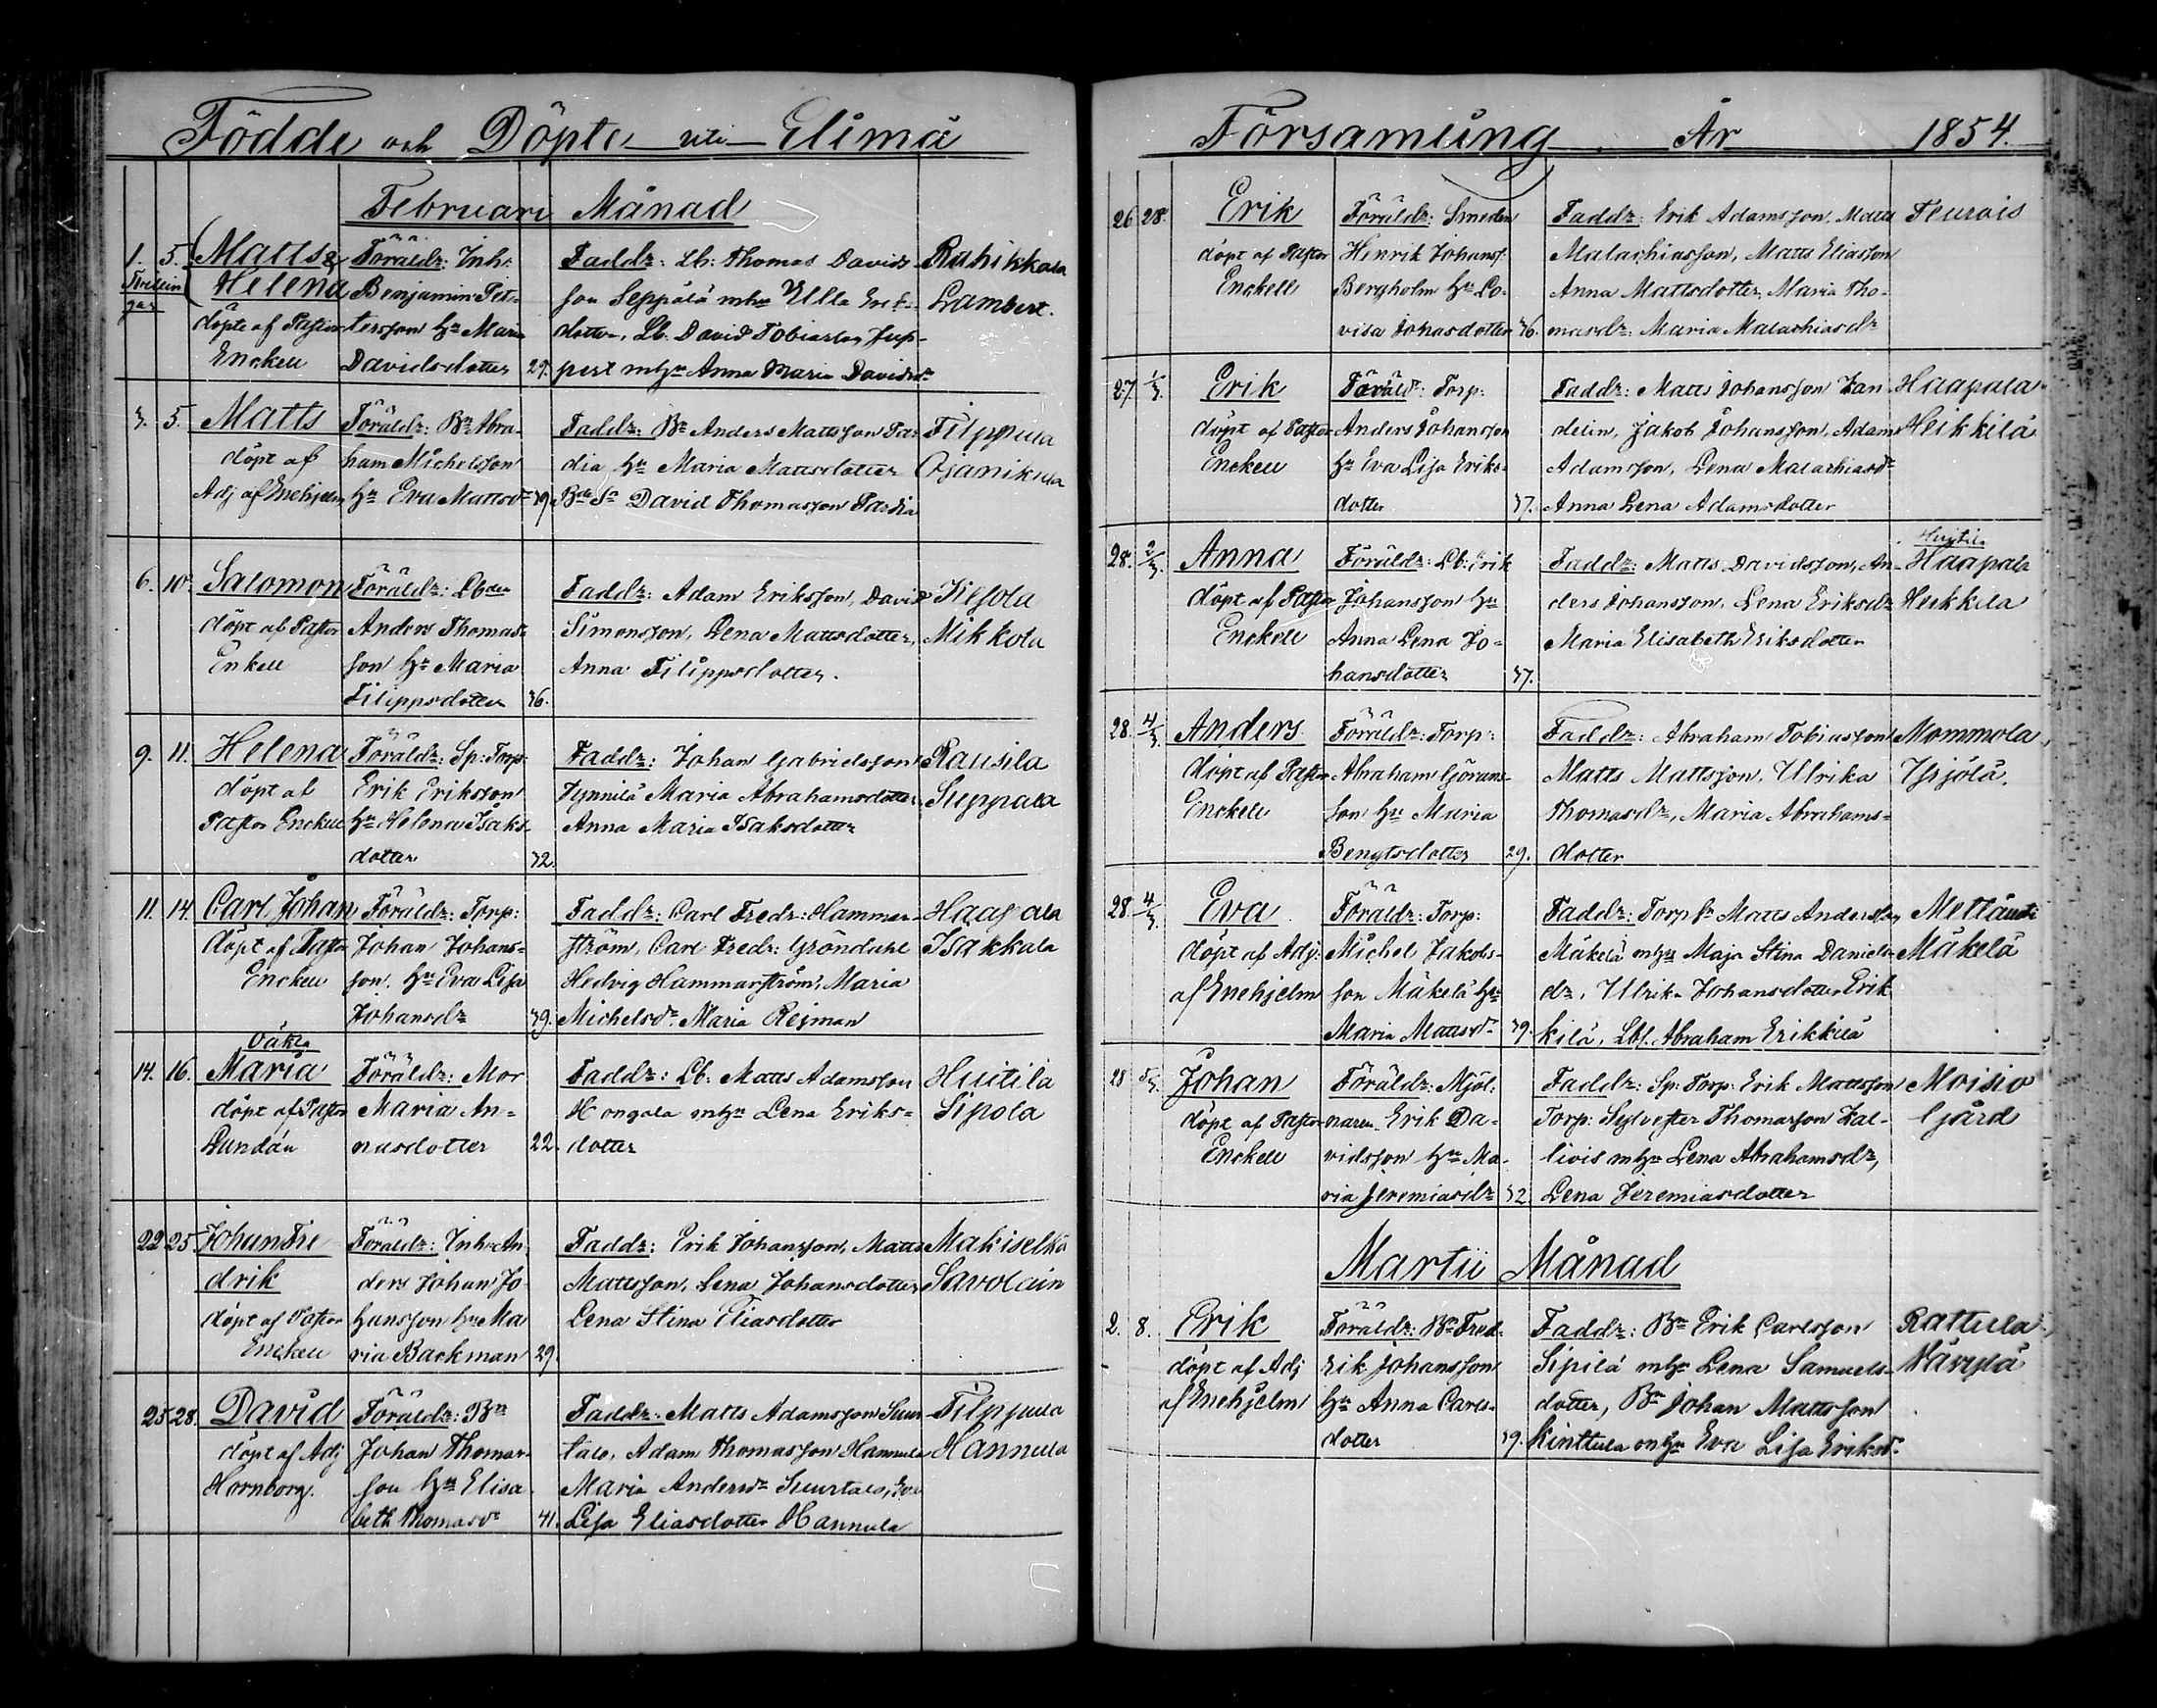 Födde och Döpte uti Elimä
Februari Månad
1. 5. Matts &
Helena
döpte af Pastor
Enckell
Föräldr: Inh:
Benjamin Pet-
tersson Hu Maria
Davidsdotter 29.
Faddr: Lb: Thomas Davids
son Seppälä mhu Ulla Erik-
dotter, Lb. David Tobiasson
pert mhu Anna Maria Davidsdr
Lambert.
3. 5. Matts
döpt af
Adj af Enehjelm
Föräldr: Bn Abra-
ham Michelsson
Hu Eva Mattsdr 39
Faddr: Bn Anders Mattsson
dia hu Maria Mattsdotter
David Thomasson
Filppula
Ojanikula
6. 10. Salomon
döpt af Pastor
Enkell
Föräldr: Lbden
Anders Thomas-
son Hu Maria
Filippsdotter 36.
Faddr: Adam Eriksson, David
Simonsson, Lena Mattsdotter,
Anna Filippsdotter.
Mikkola
9. 11. Helena
döpt af
Pastor Enckell
Föräldr: Sp: Torp:
Erik Eriksson
Hu Helena Isaks
dotter 32.
Faddr: Johan Gabrielsson
Tynnilä Maria Abrahamsdotter
Anna Maria Isaksdotter
Rausila
11. 14. Carl Johan
döpt af Pastor
Enckell
Föräldr: Torp:
Johan Johans-
son. Hu Eva Lisa
Johansdr 39.
Faddr: Carl Fredr: Hammar-
ström, Carl Fredr: Gröndahl
Hedvig Hammarström, Maria
Michelsdr. Maria Reiman
Haapala
Isakkala
Oäkta
14. 16. Maria
döpt af Pastor
Lundán
Föräldr: Mor
Maria An-
nasdotter 22.
Faddr: Lb: Matts Adamsson
Hongala mhu Lena Eriks-
dotter
Huitila
Sipola
22 25 Johan Fre
drik
döpt af Pastor
Enckell
Föräldr: Inh: An
ders Johan Jo-
hansson hu Ma
ria Backman 29.
Faddr: Erik Johansson, Matts
Mattsson, Lena Johansdotter
Lena Stina Eliasdotter
Savolain
25. 28. David
döpt af Adj
Hornborg.
Föräldr: Bn
Johan Thomas-
son Hu Elisa
beth Thomasdr 41.
Faddr: Matts Adamsson Suur
talo, Adam Thomasson Hannula
Maria Andersdr Suurtalo, Eva
Lisa Eliasdotter Hannula
Filppula
Hannula
Församling År 1854.
26 28. Erik
döpt af Pastor
Enckell
Föräldr: Smeden
Henrik Johanss.
Bergholm Hu Lo-
visa Johansdotter 36.
Faddr: Erik Adamsson, Matts
Malachiasson, Matts Eliasson
Anna Mattsdotter, Maria Tho-
masdr: Maria Malachiasdr
Peurois
27. 1/3. Erik
döpt af Pastor
Enckell
Föräldr: Torp:
Anders Johansson
Hu Eva Lisa Eriks-
dotter 37.
Faddr: Matts Johansson
delin, Jakob Johansson, Adam
Adamsson, Lena Malachiasdr
Anna Lena Adamsdotter
Haapala
Heikkilä
28. 2/3. Anna
döpt af Pastor
Enckell
Föräldr: Lb: Erik
Johansson hu
Anna Lena Jo-
hansdotter 37.
Faddr: Matts Davidsson, An-
ders Johansson, Lena Eriksdr
Maria Elisabeth Eriksdotter
Haapala
Heikkila
28. 4/3. Anders
döpt af Pastor
Enckell
Föräldr: Torp:
Abraham Görans-
son Hu Maria
Bengtsdotter 29.
Faddr: Abraham Tobiasson
Matts Mattsson, Ulrika
Thomasdr, Maria Abrahams-
dotter
Mommola
28. 4/3. Eva
döpt af Adj:
af Enehjelm
Föräldr: Torp:
Michel Jakobs-
son Mäkelä Hu
Maria Mattsdr 39.
Faddr: Torp Matts Andersson
Mäkelä mhu Maja Stina Daniels-
dr, Ulrika Johansdotter Erik
kilä, Lbs. Abraham Erikkilä
Mäkelä
28 5/3 Johan
döpt af Pastor
Enckell
Föräldr: Mjöl-
naren Erik Da-
vidsson Hu Ma-
ria Jeremiasdr 32.
Faddr: Sp: Torp: Erik Mattsson
Torp: Sylvester Thomasson Kal-
liois mhu Lena Abrahamsdr,
Lena Jeremiasdotter
Moisio
Gård
Martii Månad
2. 8. Erik
döpt af Adj
af Enehjelm
Föräldr: Bn Fred-
rik Johansson
Hu Anna Carls-
dotter 39.
Faddr: Bn Erik Carlsson
Sipilä mhu Lena Samuels-
dotter, Bn Johan Mattsson
Kinttula mhu Eva Lisa Eriksdr
Rattula